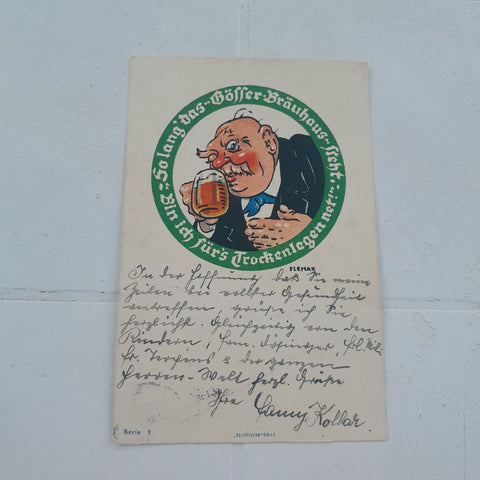 „So lang' das Gösser Bräuhaus steht,
Bin ich für's Trockenlegen net!"
FLEMAX
In der Hoffnung daß Sie meine
Zeilen bei vollster Gesundheit
antreffen grüße ich Sie
herzlichst. Gleichzeitig von den
Kindern, Fam. Frl.
Fr. & der ganzen
Herren-Welt herzl. Grüße
Ihre Fanny Kollar.
Serie 1